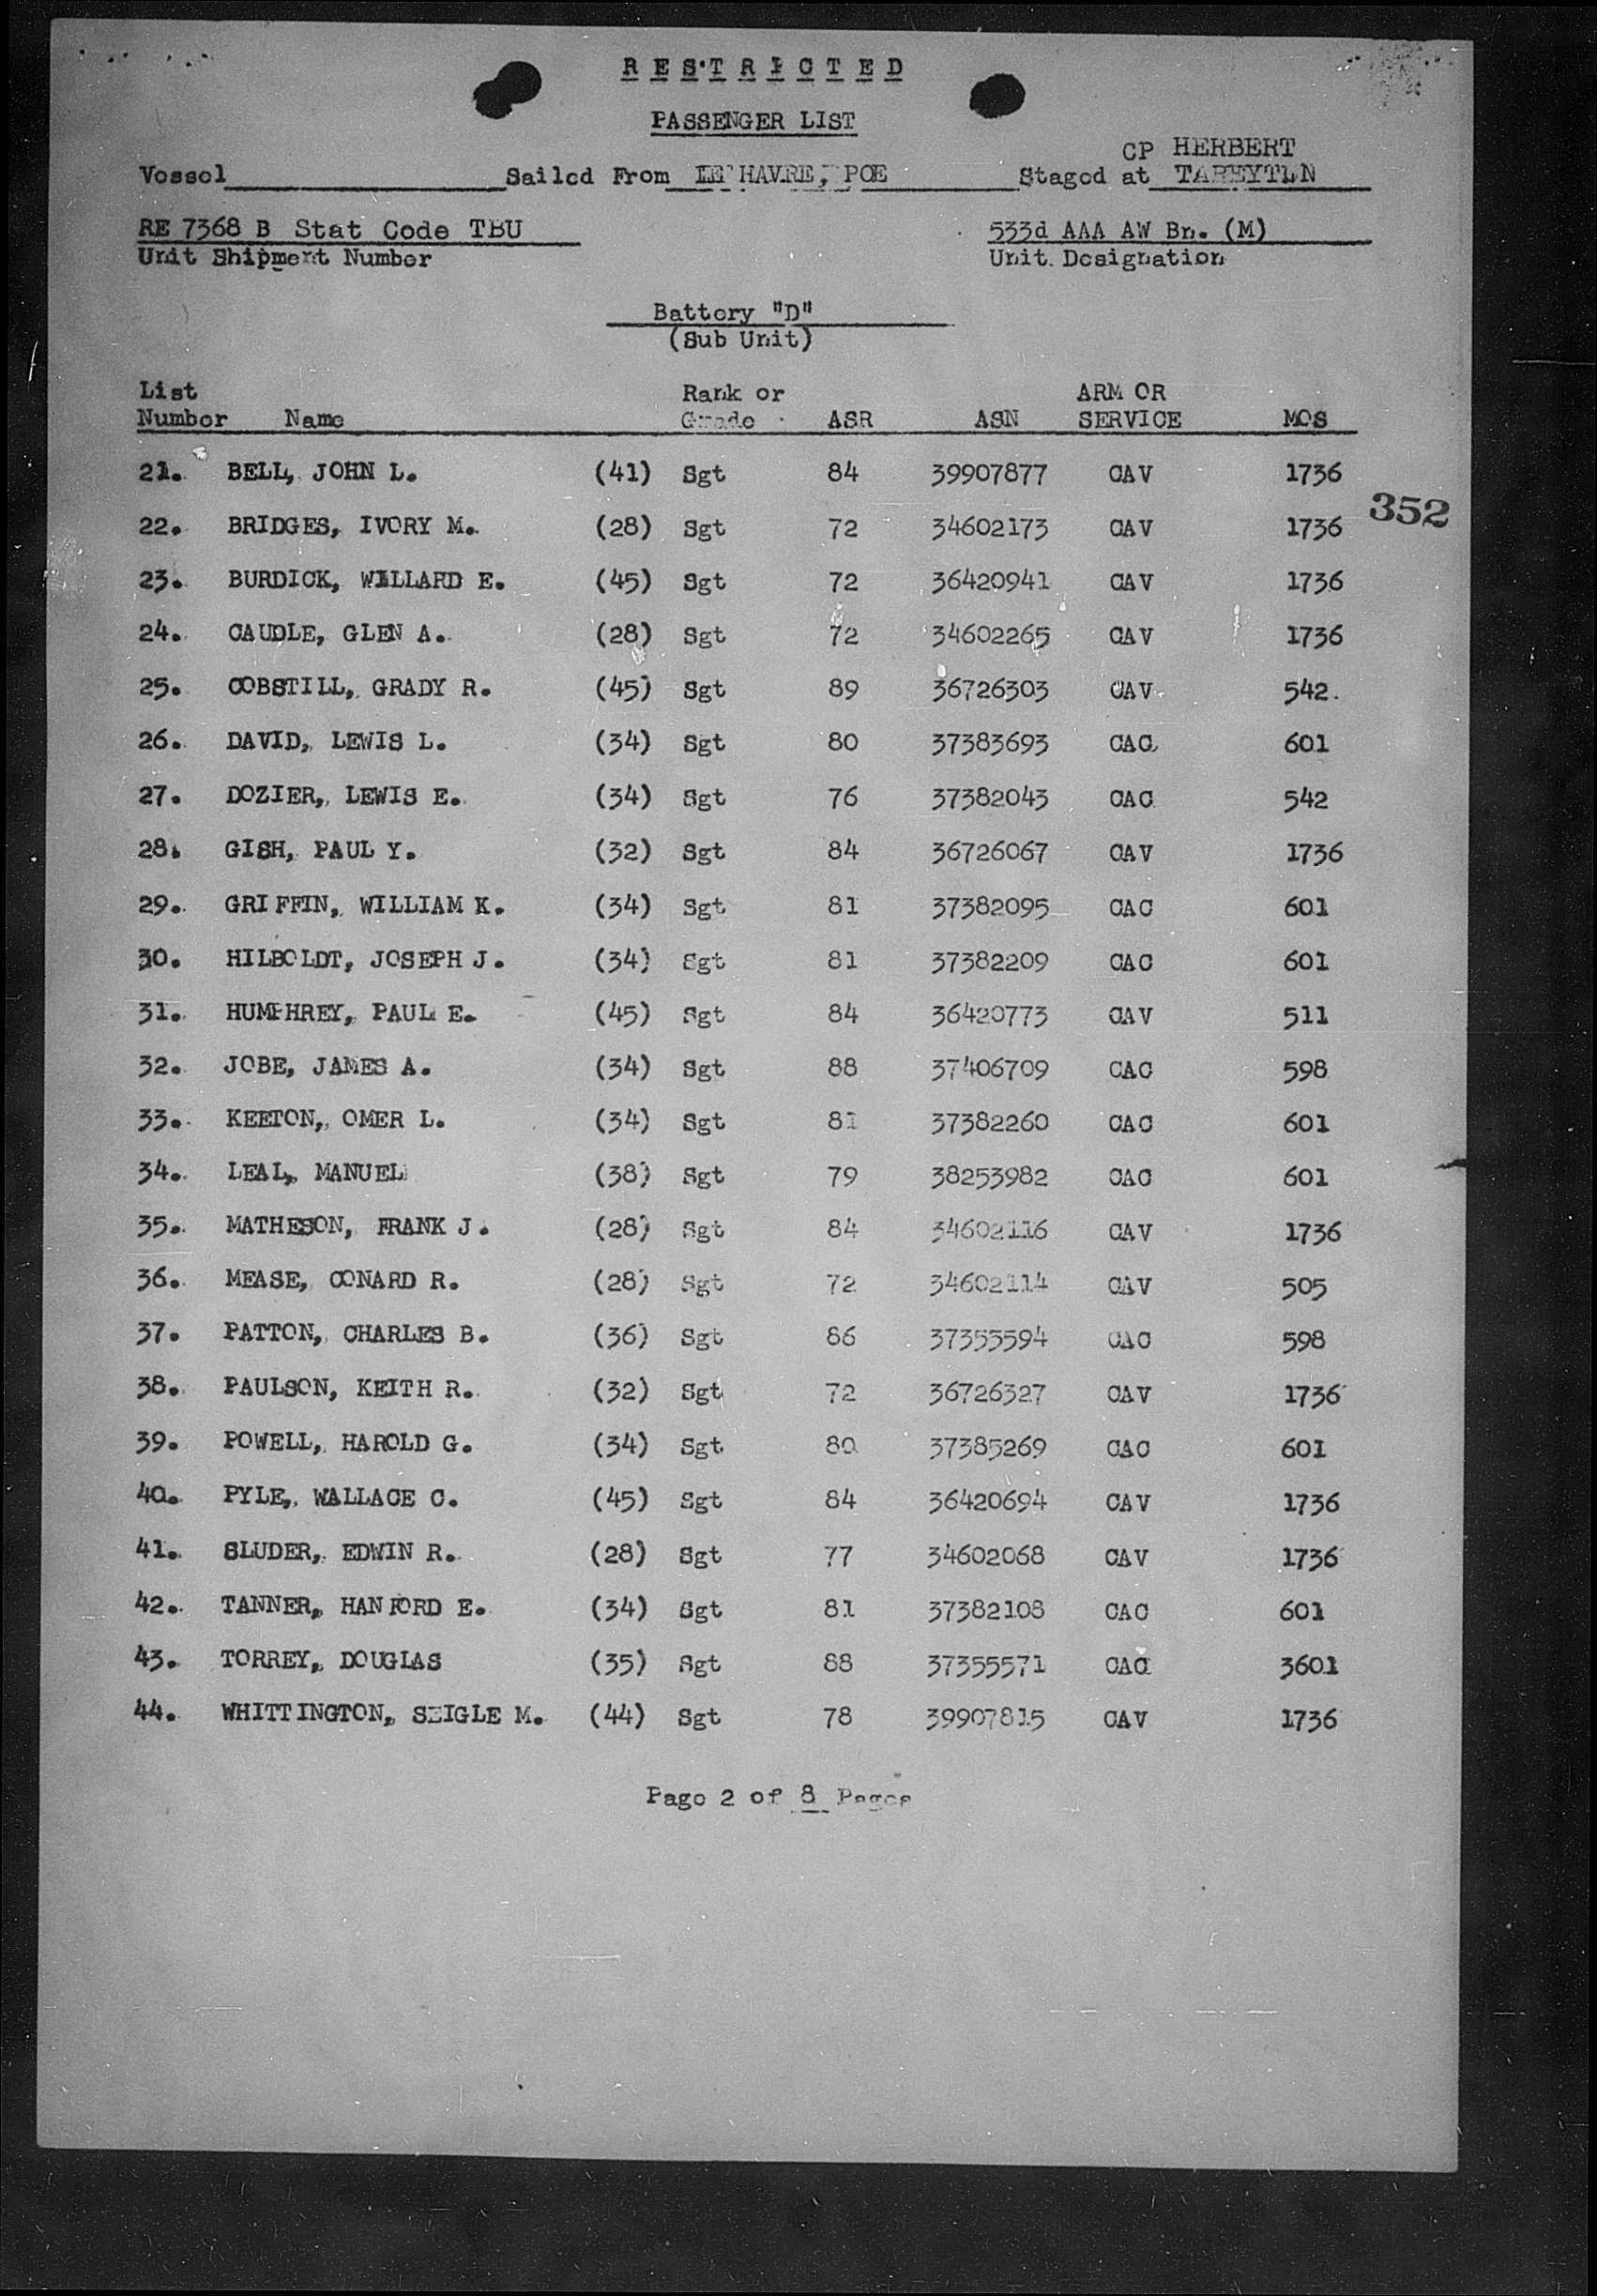 RESTRICTED
PASSENGER LIST
CP HERBERT
Vessel Sailed From LE HAVRE, POE Staged at TAREYTON
RE 7368 B Stat Code TBU 533d AAA AW Bn. (M)
Unit Shipment Number Unit Designation
Battery "D"
(Sub Unit)
List Rank or ARM OR
Number Name Grade ASR ASN SERVICE MOS
21. BELL, JOHN L. (41) Sgt 84 39907877 CAV 1736
352
22. BRIDGES, IVORY M. (28) Sgt 72 34602173 CAV 1736
23. BURDICK, WILLARD E. (45) Sgt 72 36420941 CAV 1736
24. CAUDLE, GLEN A. (28) Sgt 72 34602265 CAV 1736
25. COBSTILL, GRADY R. (45) Sgt 89 36726303 CAV 542
26. DAVID, LEWIS L. (34) Sgt 80 37383693 CAC 601
27. DOZIER, LEWIS E. (34) Sgt 76 37382043 CAC 542
28. GISH, PAUL Y. (32) Sgt 84 36726067 CAV 1736
29. GRIFFIN, WILLIAM K. (34) Sgt 81 37382095 CAC 601
30. HILBOLDT, JOSEPH J. (34) Sgt 81 37382209 CAC 601
31. HUMPHREY, PAUL E. (45) Sgt 84 36420773 CAV 511
32. JOBE, JAMES A. (34) Sgt 88 37406709 CAC 598
33. KEETON, OMER L. (34) Sgt 81 37382260 CAC 601
34. LEAL, MANUEL (38) Sgt 79 38253982 CAC 601
35. MATHESON, FRANK J. (28) Sgt 84 34602116 CAV 1736
36. MEASE, CONARD R. (28) Sgt 72 34602114 CAV 505
37. PATTON, CHARLES B. (36) Sgt 86 37353594 CAC 598
38. PAULSON, KEITH R. (32) Sgt 72 36726327 CAV 1736
39. POWELL, HAROLD G. (34) Sgt 80 37385269 CAC 601
40. PYLE, WALLACE C. (45) Sgt 84 36420694 CAV 1736
41. SLUDER, EDWIN R. (28) Sgt 77 34602068 CAV 1736
42. TANNER, HANFORD E. (34) Sgt 81 37382108 CAC 601
43. TORREY, DOUGLAS (35) Sgt 88 37355571 CAC 3601
44. WHITTINGTON, SEIGLE M. (44) Sgt 78 39907815 CAV 1736
Page 2 of 8 Pages